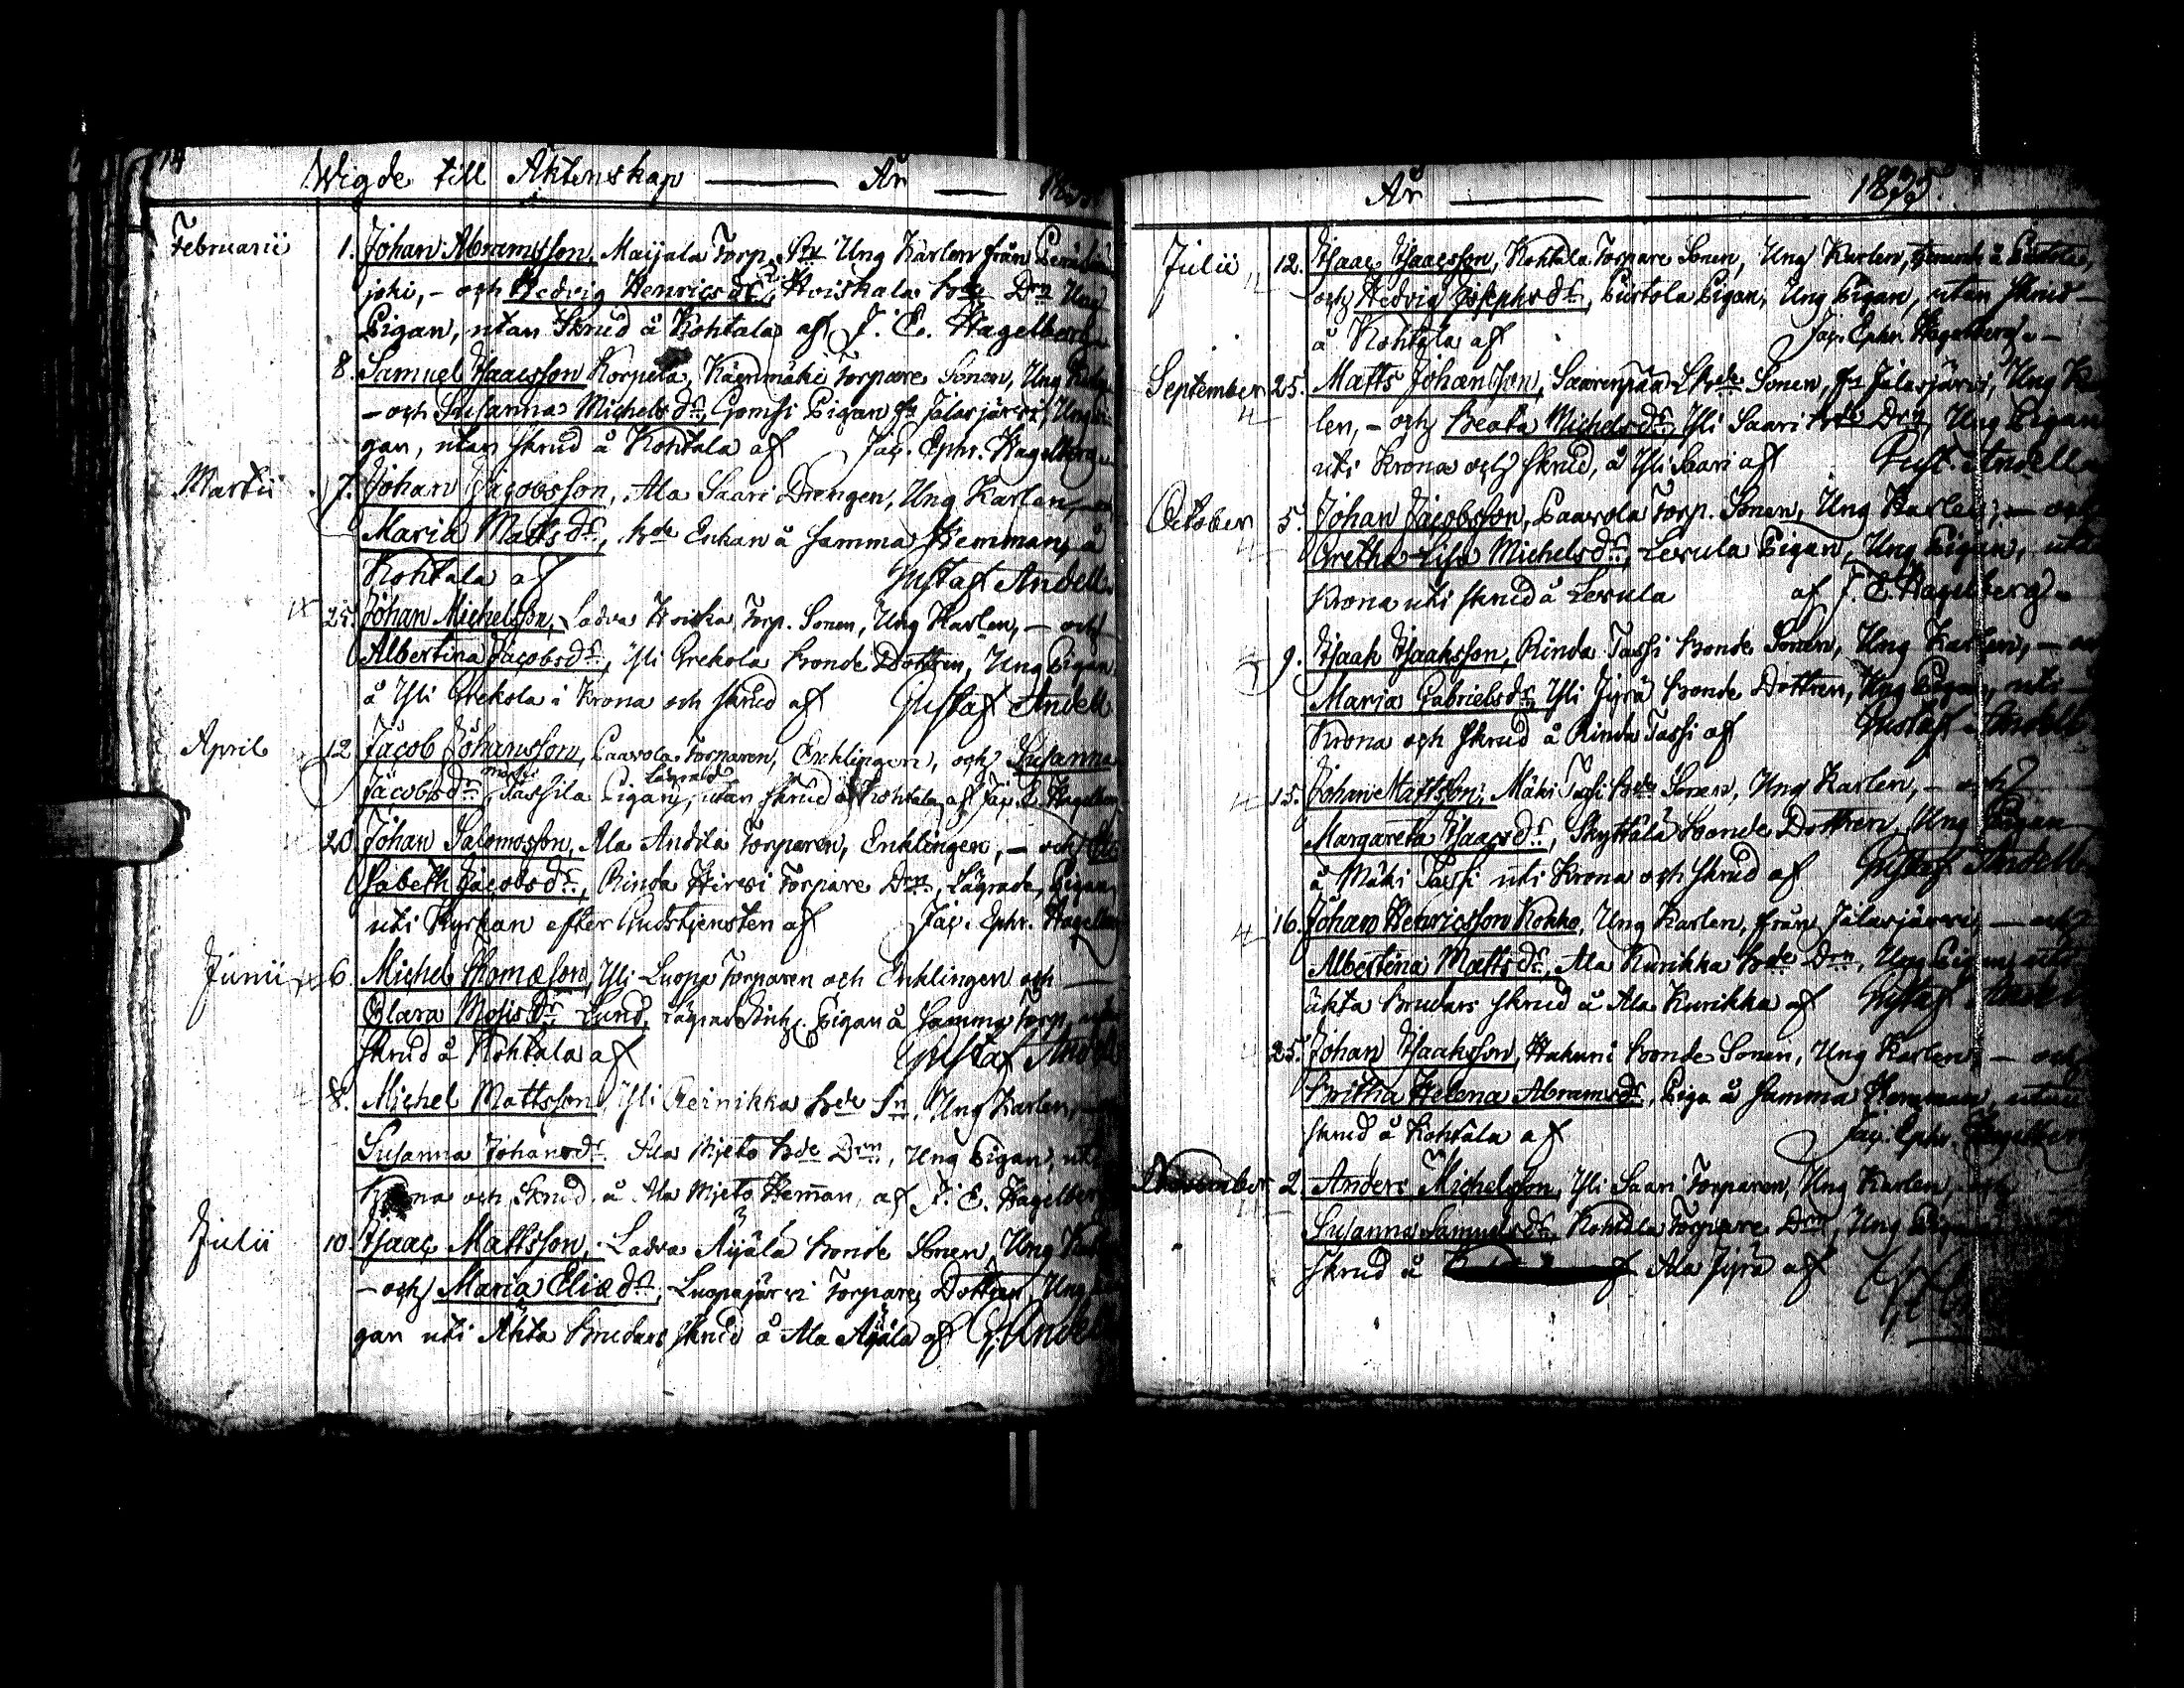 14
Wigde till Äktenskap — År —
Februarii 1. Johan Abramsson, Maijala Torp. Sn Ung Karlen från
joki, - och Hedvig Henricsdr, Hoiskala bde Drn Ung
Pigan, utan Skrud å Kohtala af J. E. Hagelberg
8. Samuel Isaacsson Korpela, Käenmäki Torpare Sonen, Ung
- och Susanna Michelsdr, Gomsi Pigan fr Jalasjärvi, Ung
gan, utan skrud å Kohtala af Jac. Ephr. Hagelberg
Martii 7. Johan Jacobsson, Ala Saari Drengen, Ung Karlen,
Maria Mattsdr, bde Enkan å samma Hemman, å
Kohtala af Gustaf Andell
25. Johan Michelsson, Ladva Koiska Torp. Sonen, Ung Karlen, - och
Albertina Jacobsdr, Yli Grekola Bonde Dottren, Ung Pigan,
å Yli Grekola i Krona och skrud af Gustaf Andell
April 12 Jacob Johansson, Paavola Torparen, Enklingen, och Susanna
Jacobsdr, Tassila Pigan, Lägrade utan skrud å Kohtala af Jac. E. Hagelberg
20. Johan Salomosson, Ala Andila Torparen, Enklingen, - och
sabeth Jacobsdr, Rinda Hirvi Torpare Drn, Lägrade, Pigan
uti Kyrkan efter Gudstjensten af Jac. Ephr. Hagelberg
Junii 6. Michel Thomæson, Yli Luopa Torparen och Enklingen och —
Clara Mosisdr Lund, Pigan å samma Torp,
skrud å Kohtala af Gustaf Andell
8. Michel Mattsson, Yli Reinikka bde Sn, Ung Karlen,
Susanna Johansdr Ala Mjeto bde Drn, Ung Pigan, uti
Krona och Skrud å Ala Mjeto Hemman, af J. E. Hagelberg
Julii 10. Isaac Mattsson, Ladva Äijälä Bonde Sonen, Ung
- och Maria Eliædr, Luopajärvi Torpare Dottren, Ung
gan uti Äkta Brudars skrud å Ala Äijälä af G. Andell
År — — 1835.
Julii 12. Isaac Isaacsson, Kohtala Torpare Sonen, Ung Karlen,
och Hedvig Josephsdr, Purtola Pigan, Ung Pigan, utan skrud
å Kohtala af Jac. Ephr. Hagelberg
September 25. Matts Johansson, Saarenpää bde Sonen, fr Jalasjärvi, Ung
len, - och Beata Michelsdr, Yli Saari bde Drn, Ung Pigan
uti Krona och skrud, å Yli Saari af Gust. Andell
October 5. Johan Jacobsson, Paavola Torp. Sonen, Ung Karlen, - och
Gretha Lisa Michelsdr, Levula Pigan, Ung Pigan, utan
Krona uti skrud å Levula af J. E. Hagelberg
9. Isaak Isaaksson, Rinda Tassi Bonde Sonen, Ung Karlen, -
Maria Gabrielsdr, Yli Jyrä Bonde Dottren, Ung Pigan, uti
Krona och skrud å Rinda Tassi af Gustaf Andell
15. Johan Mattsson, Mäki Tassi bde Sonen, Ung Karlen, - och
Margareta Isaacsdr, Skyttälä Bonde Dottren, Ung Pigan
å Mäki Tassi uti Krona och skrud af Gustaf Andell
16. Johan Henricsson Kokko, Ung Karlen, från Jalasjärvi, - och
Albertina Mattsdr, Ala Kurikka bde Drn, Ung Pigan, uti
äkta Brudars skrud å Ala Kurikka af Gustaf Andell
25. Johan Isaaksson, Hakuni Bonde Sonen, Ung Karlen, - och
Britha Helena Abramsdr, Piga å samma Hemman, utan
skrud å Kohtala af Jac. Ephr. Hagelberg
November 2 Anders Michelsson, Yli Saari Torparen, Ung Karlen,
Susanna Samuelsdr, Kohtala Torpare Drn, Ung Pigan
skrud å Ala Jyrä af